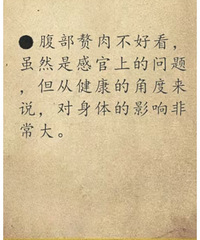 ●腹部赘肉不好看，
虽然是感官上的问题
，但从健康的角度来
说，对身体的影响非
常大。